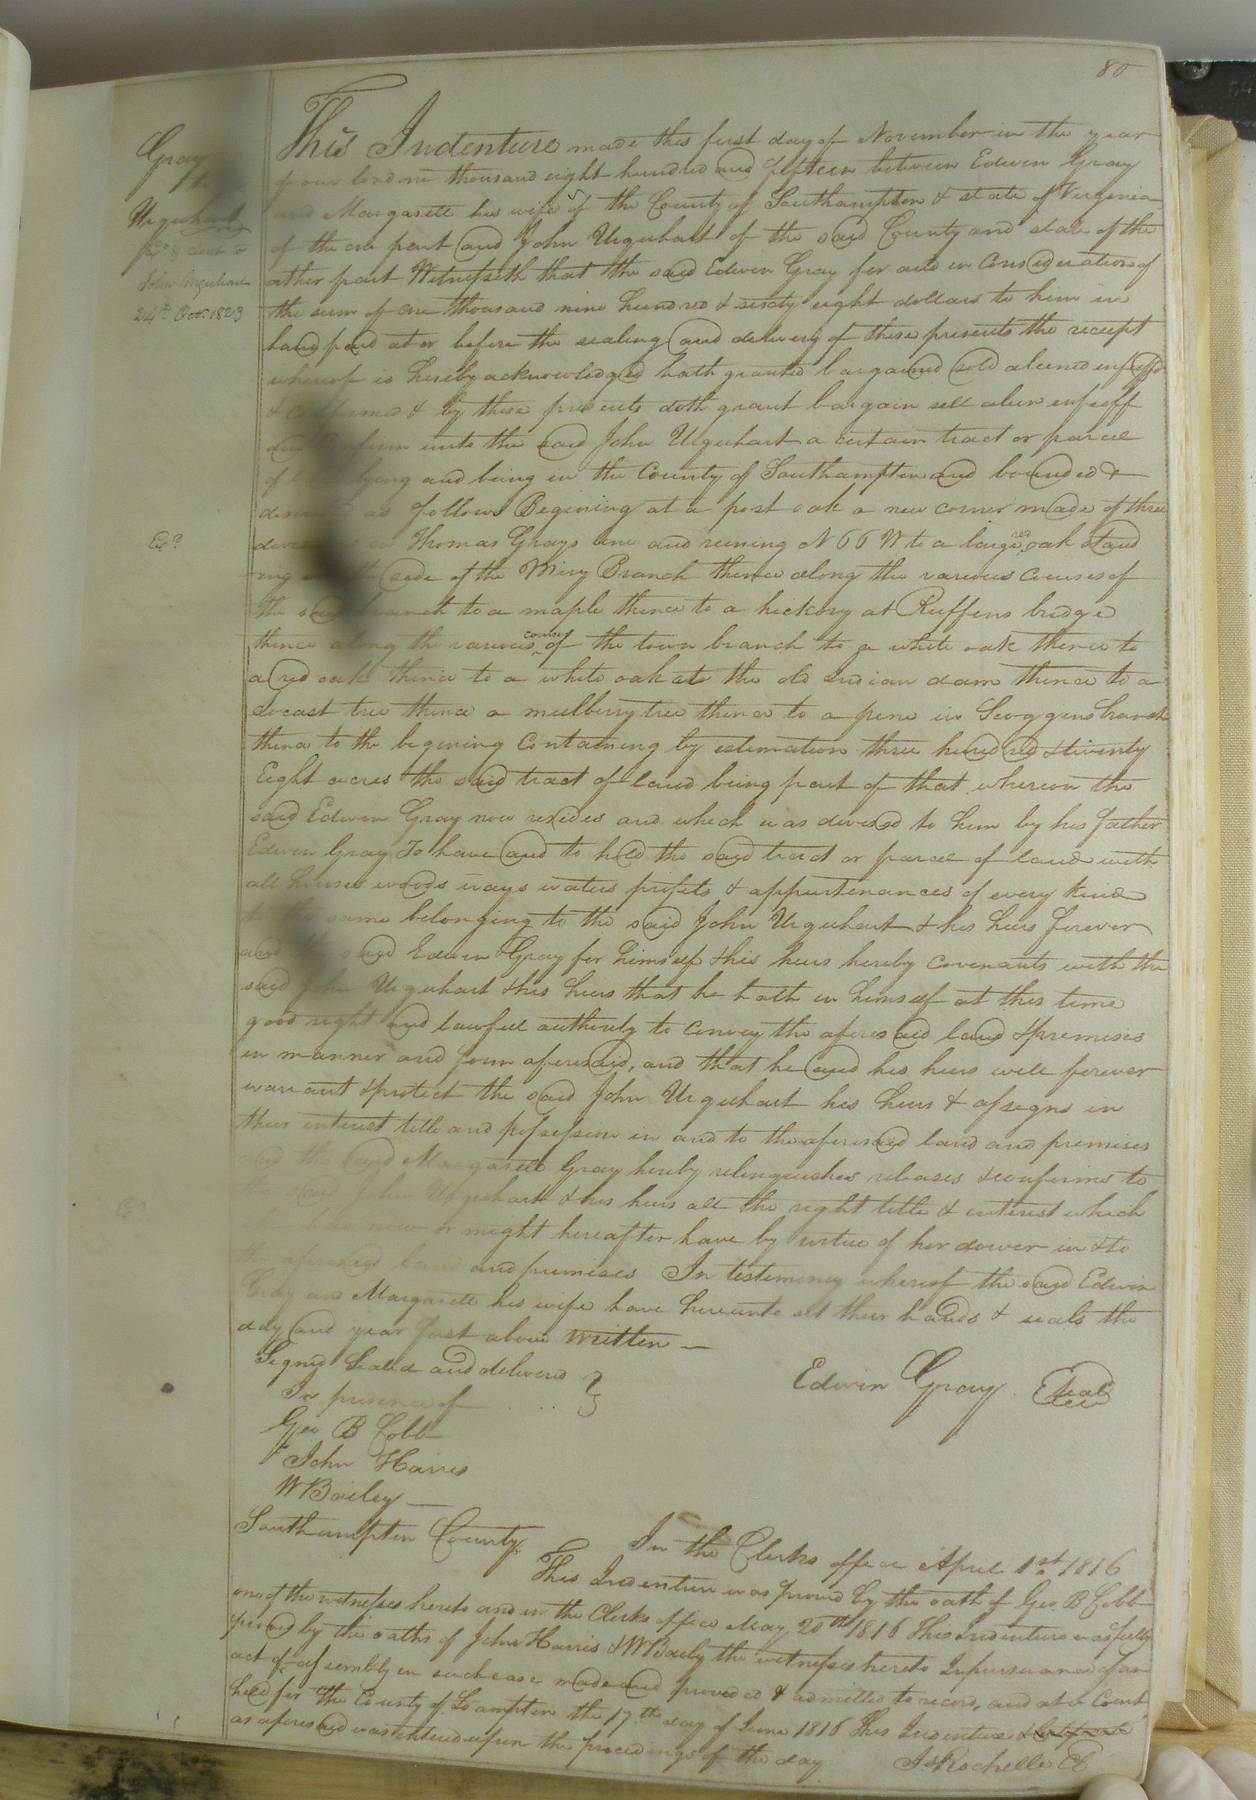 80
Gray
to
Urquhart
Exd & deld to
John Urquhart
24th Octr 1823
Exd
This Indenture made this first day of November in the year
of our lord one thousand eight hundred and fifteen between Edwin Gray
and Margarett his wife of the County of Southampton & state of Virginia
of the one part and John Urquhart of the said County and state of the
other part Witnesseth that the said Edwin Gray for and in Consideration of
the sum of one thousand nine hundred & sixty eight dollars to him in
hand paid at or before the sealing and delivery of these presents the receipt
whereof is hereby acknowledged hath granted bargained sold aliened enfeoff'd
& confirmed & by these presents doth grant bargain sell alien enfeoff
and confirm unto the said John Urquhart a certain tract or parcel
of land lying and being in the County of Southampton and bounded &
described as follows Begining at a post oak a new corner made of three
in Thomas Grays line and runing N 66 W to a large red oak stand
ing side of the Miry Branch thence along the various courses of
the said branch to a maple thence to a hickory at Ruffins bridge
thence along the various courses of the town branch to a white oak thence to
a red oak thence to a white oak at the old indian dam thence to a
Locast tree thence a mulberry tree thence to a pine in Scoggins branch
thence to the begining Containing by estimation three hundred & twenty
Eight acres the said tract of land being part of that whereon the
said Edwin Gray now resides and which was devised to him by his father
Edwin Gray To have and to hold the said tract or parcel of land with
all houses woods ways waters profits & appurtenances of every kind
to the same belonging to the said John Urquhart & his heirs forever
and the said Edwin Gray for himself & his heirs hereby covenants with the
said John Urquhart & his heirs that he hath in himself at this time
good right and lawfull authority to convey the aforesaid land & premises
in manner and form aforesaid, and that he and his heirs will forever
warrant & protect the said John Urquhart his heirs & assigns in
their interest title and possession in and to the aforesaid land and premises
and the said Margarett Gray hereby relinquishes releases & confirms to
the said John Urquhart & his heirs all the right title & interest which
now or might hereafter have by virtue of her dower in & to
the aforesaid land and premises In testimony whereof the said Edwin
Gray and Margarett his wife have hereunto set their hands & seals the
day and year first above written —
Signed Sealed and delivered
In presence of
Edwin Gray Seal
Geo. B Cobb
John Harris
W Bailey —
Southampton County
In the Clerks office April 1st 1816
This Indenture was proved by the oath of Geo. B Cobb
one of the witnesses hereto and in the Clerks office May 20th 1816 This Indenture was fully
proved by the oaths of John Harris & W Baily the witnesses hereto In pursuance of an
act of assembly in such case made and provided & admitted to record, and at a Court
held for the County of Soampton the 17th day of June 1816 This Indenture
as aforesaid was entered upon the procedings of the day
Js Rochelle Cl